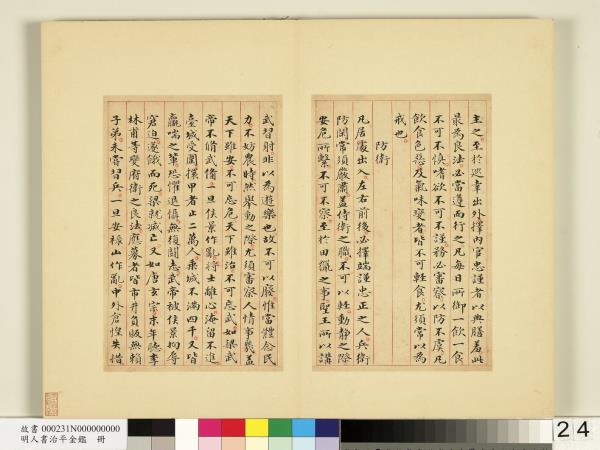 主之至於巡幸出外擇內官忠謹者以典膳羞此
最為良法必當遵而行之凡每日所御一飲一食
不可不慎嗜欲不可不謹務必審察以防不虞凡
飲食色惡及氣味變者皆不可輕食尤須常以為
戒也
防衛
凡居處出入左右前後必擇端謹忠正之人兵衛
防閑常須嚴肅蓋侍衛之職不可以輕動靜之際
安危所繫不可不察至於田獵之事聖王所以講
武習射非以為遊樂也故不可以廢惟當體念民
力不妨農時然舉動之際尤須審察人情事義蓋
天下雖安不可忘危天下雖治不可忘武如梁武
帝不脩武備一旦侯景作亂將士離心淹留不進
臺城受圍擐甲者止二萬人乘城不滿四千又皆
羸喘之輩恐懼退懾無復鬪志武帝被侯景拘辱
窘迫遂餓而死梁就滅亡又如唐玄宗末年聽李
林甫等變府衛之良法應募者皆市井負販無賴
子弟未嘗習兵一旦安祿山作亂中外倉惶失措
故書 000231N000000000
明人書治平金鑑 冊
24